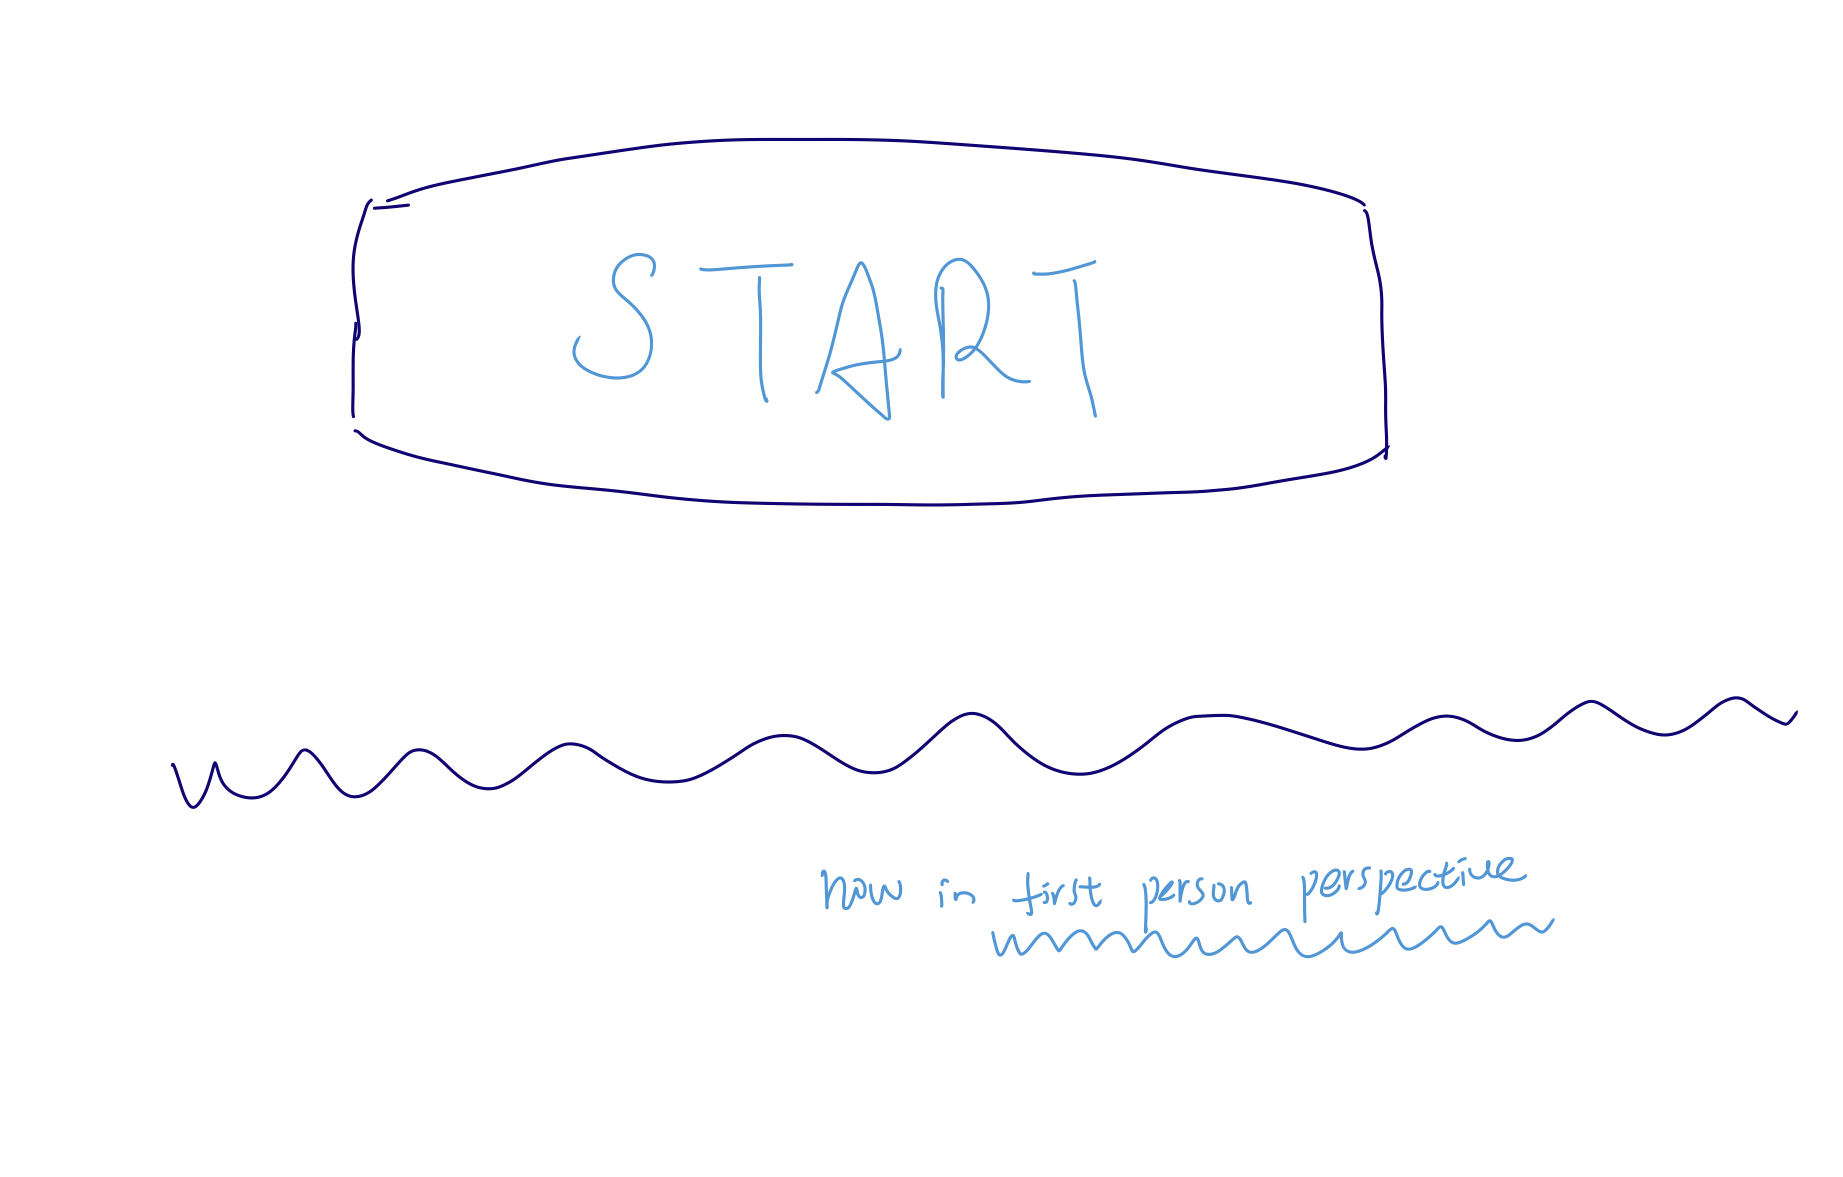 START
now in first person perspective